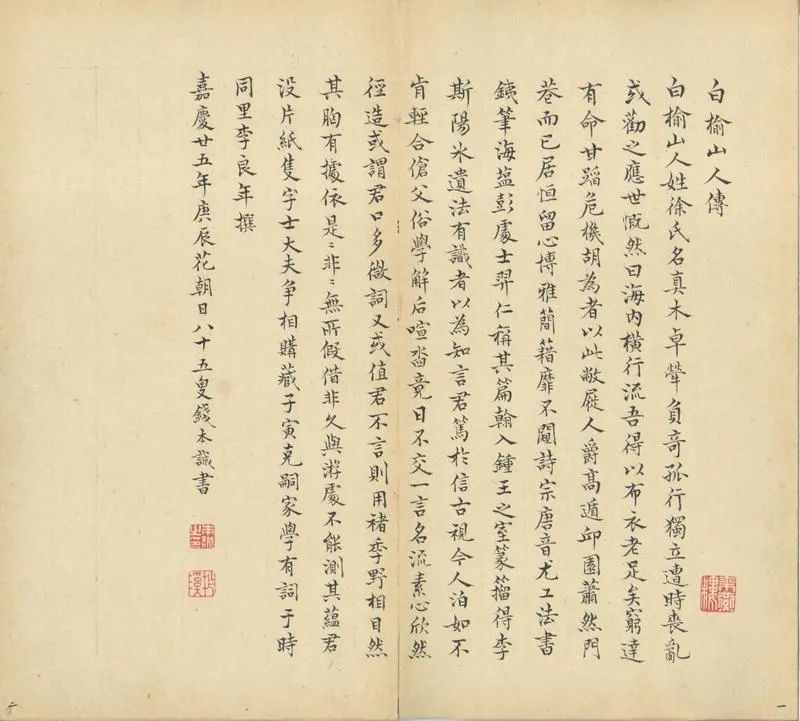 白榆山人傳
白榆山人姓徐氏名真木卓犖負奇孤行獨立遭時喪亂
或勸之應世慨然曰海內橫行流吾得以布衣老足矣窮達
有命甘蹈危機胡為者以此敝屣人爵高遁邱園蕭然門
巷而已居恒留心博雅簡籍靡不閱詩宗唐音尤工法書
銕筆海塩彭處士羿仁稱其篇翰入鍾王之室篆籀得李
斯陽冰遺法有識者以為知言君篤於信古視今人泊如不
肯輕合傖父俗學解后喧沓竟日不交一言名流素心欣然
徑造或謂君口多微詞又或值君不言則用褚季野相目然
其胸有據依是〻非〻無所假借非久與游處不能測其蘊君
沒片紙隻字士大夫爭相購藏子寅克嗣家學有詞于時
同里李良年撰
嘉慶廿五年庚辰花朝日八十五叟錢本誠書
一
二